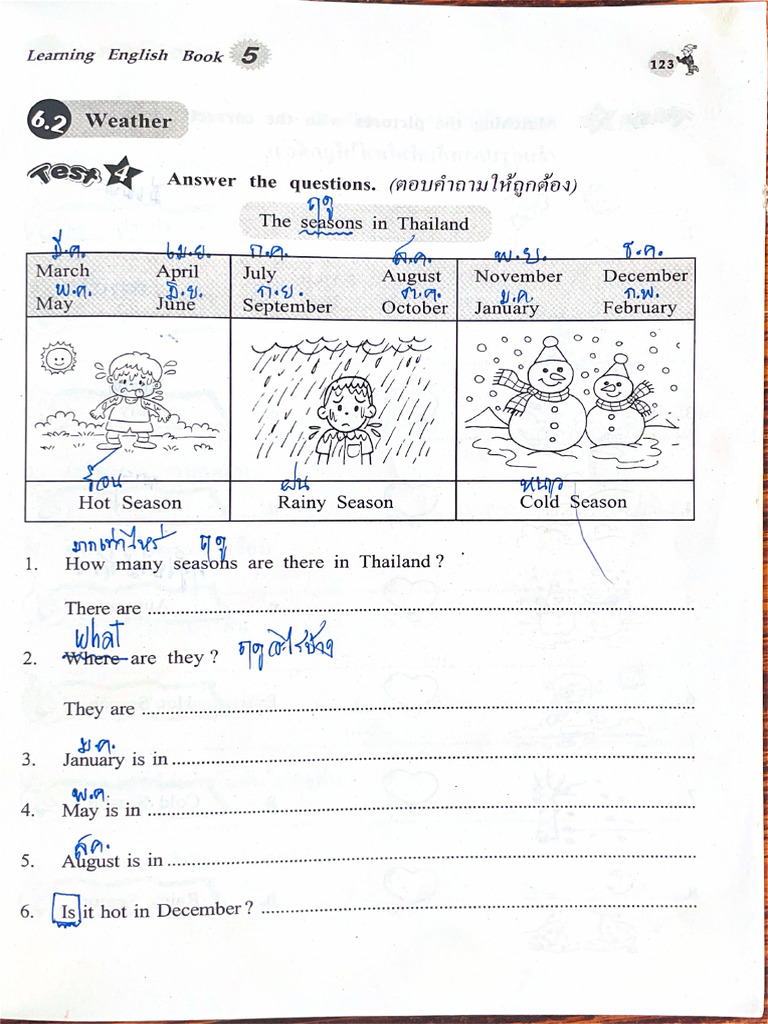 Learning English Book 5
123
6.2 Weather
Test 4 Answer the questions. (ตอบคำถามให้ถูกต้อง)
ฤดู
The seasons in Thailand
มี.ค. เม.ย. ก.ค. ส.ค. พ.ย. ธ.ค.
March April July August November December
พ.ค. มิ.ย. ก.ย. ต.ค. ม.ค ก.พ.
May June September October January February
ร้อน ฝน หนาว
Hot Season Rainy Season Cold Season
มากเท่าไหร่ ฤดู
1. How many seasons are there in Thailand ?
There are
What
2. Where are they ? ฤดูอะไรบ้าง
They are
ม.ค.
3. January is in
พ.ค.
4. May is in
ส.ค.
5. August is in
6. Is it hot in December ?